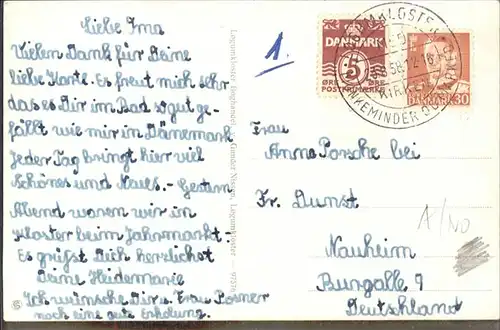 Liebe Ima
Vielen Dank für Deine
liebe Karte. Es freut mich sehr
das es Dir im Bad so gut ge-
fällt wie mir in Dänemark
Jeder Tag bringt hier viel
Schönes und Neues. - Gestern
Abend waren wir in
Kloster beim Jahrmarkt. -
Es grüßt Dich herzlichst
Deine Heidemarie
Ich wünsche Dir u. Frau Posner
noch eine gute Erholung.
Løgumkloster Boghandel, Løgumkloster
97516
1.
DANMARK
5
ØRE ØRE
POSTFRIMÆRKE
DANMARK 30
KLOSTER
58 12-16
KIRKE
MINDER
Frau
Anna Porsche bei
Fr. Dunst
Nauheim
Burgalle 9
Deutschland
A/NO